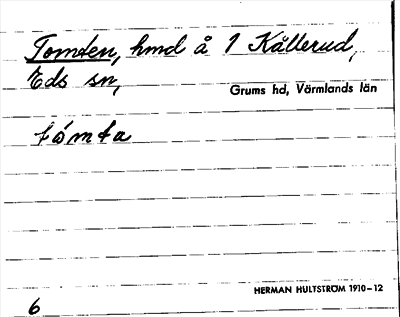 Tomten, hmd å 1 Kållerud,
Eds sn,
Grums hd, Värmlands län
tómta
HERMAN HULTSTRÖM 1910–12
6